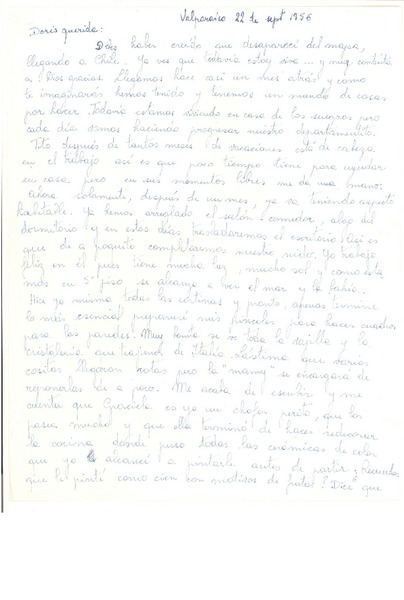 Valparaiso 22 de sept 1956
Doris querida:
Debes haber creido que desaparecí del mapa,
llegando a Chile... Ya ves que todavía estoy viva... y muy contenta
a Dios gracias. Llegamos hace casi un mes atrás y como
te imaginarás hemos tenido y tenemos un mundo de cosas
por hacer. Todavía estamos viviendo en casa de los suegros pero
cada día vamos haciendo progresar nuestro departamento.
Tito después de tantos meses de vacaciones está de cabeza
en el trabajo así es que poco tiempo tiene para ayudar
en casa pero en sus momentos libres me da una mano.
Ahora solamente, después de un mes, ya va teniendo aspecto
habitable. Ya hemos arreglado el salón-comedor, algo del
dormitorio y en estos días trasladaremos el escritorio. Así es
que de a poquito completaremos nuestro nido. Yo trabajo
feliz en él pues tiene mucha luz, mucho sol y como esta
mos en 5º piso se alcanza a ver el mar y la bahía.
Hice yo misma todas las cortinas y pronto, apenas termine
lo más esencial prepararé mis pinceles para hacer cuadros
para las paredes. Muy bonita se ve toda la vajilla y la
cristalería que trajimos de Italia. Lástima que varias
cositas llegaron rotas pero la "mamy" se encargará de
reponerlas de a poco. Me acaba de escribir y me
cuenta que Graciela es ya un chofer perito, que los
pasea mucho y que ella terminó de hacer redecorar
la cocina donde puso todas las cerámicas de color
que yo alcancé a pintarle antes de partir ¿Recuerdas
que le pinté como cien con motivos de frutas? Dice que